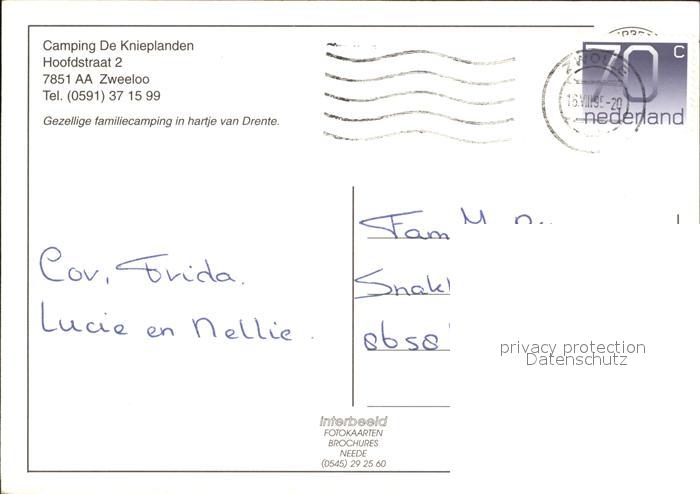 Camping De Knieplanden
Hoofdstraat 2
7851 AA Zweeloo
Tel. (0591) 37 15 99
Gezellige familiecamping in hartje van Drente.
70 C
nederland
ZWOLLE
Cor, Frida.
Lucie en Nellie.
Fam M
8658
privacy protection
Datenschutz
Interbeeld
FOTOKAARTEN
BROCHURES
NEEDE
(0545) 29 25 60